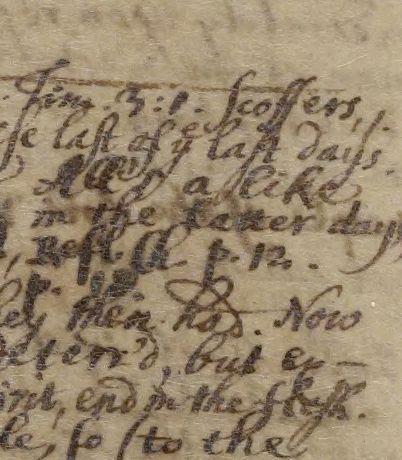 . Tim. 3:1. Scoffers,
last of yᵉ last days.
a like
in the latter days
, Refl. Ch. p. 12.
p.
they then had. Now
deterr'd, but en-
, end in the flesh.
so (to the